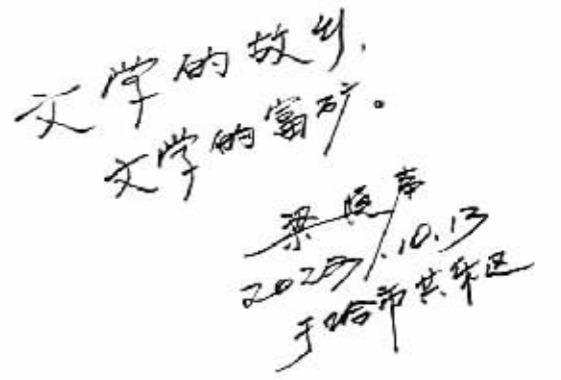 文学的故乡,
文学的富矿。
梁晓声
2023.10.13
于哈市共乐区